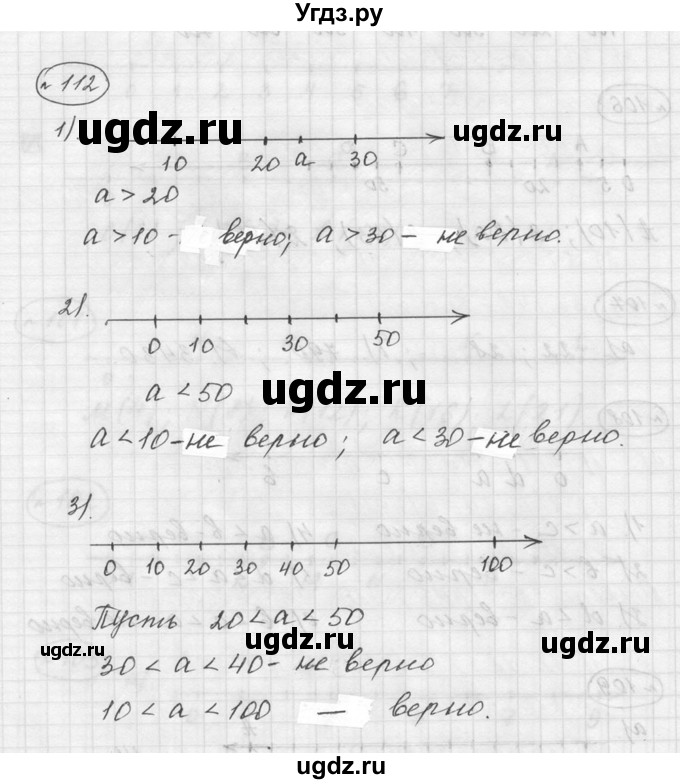 Угдз.ру
№ 112
1)
ugdz.ru ugdz.ru
10 20 a 30
a > 20
a > 10 - верно; a > 30 - не верно.
2).
0 10 30 50
ugdz.ru
a < 50
a < 10 - не верно; a < 30 - не верно.
3).
0 10 20 30 40 50 100
Пусть 20 < a < 50
ugdz.ru ugdz.ru ugdz.ru
30 < a < 40 - не верно
10 < a < 100 — верно.
ugdz.ru